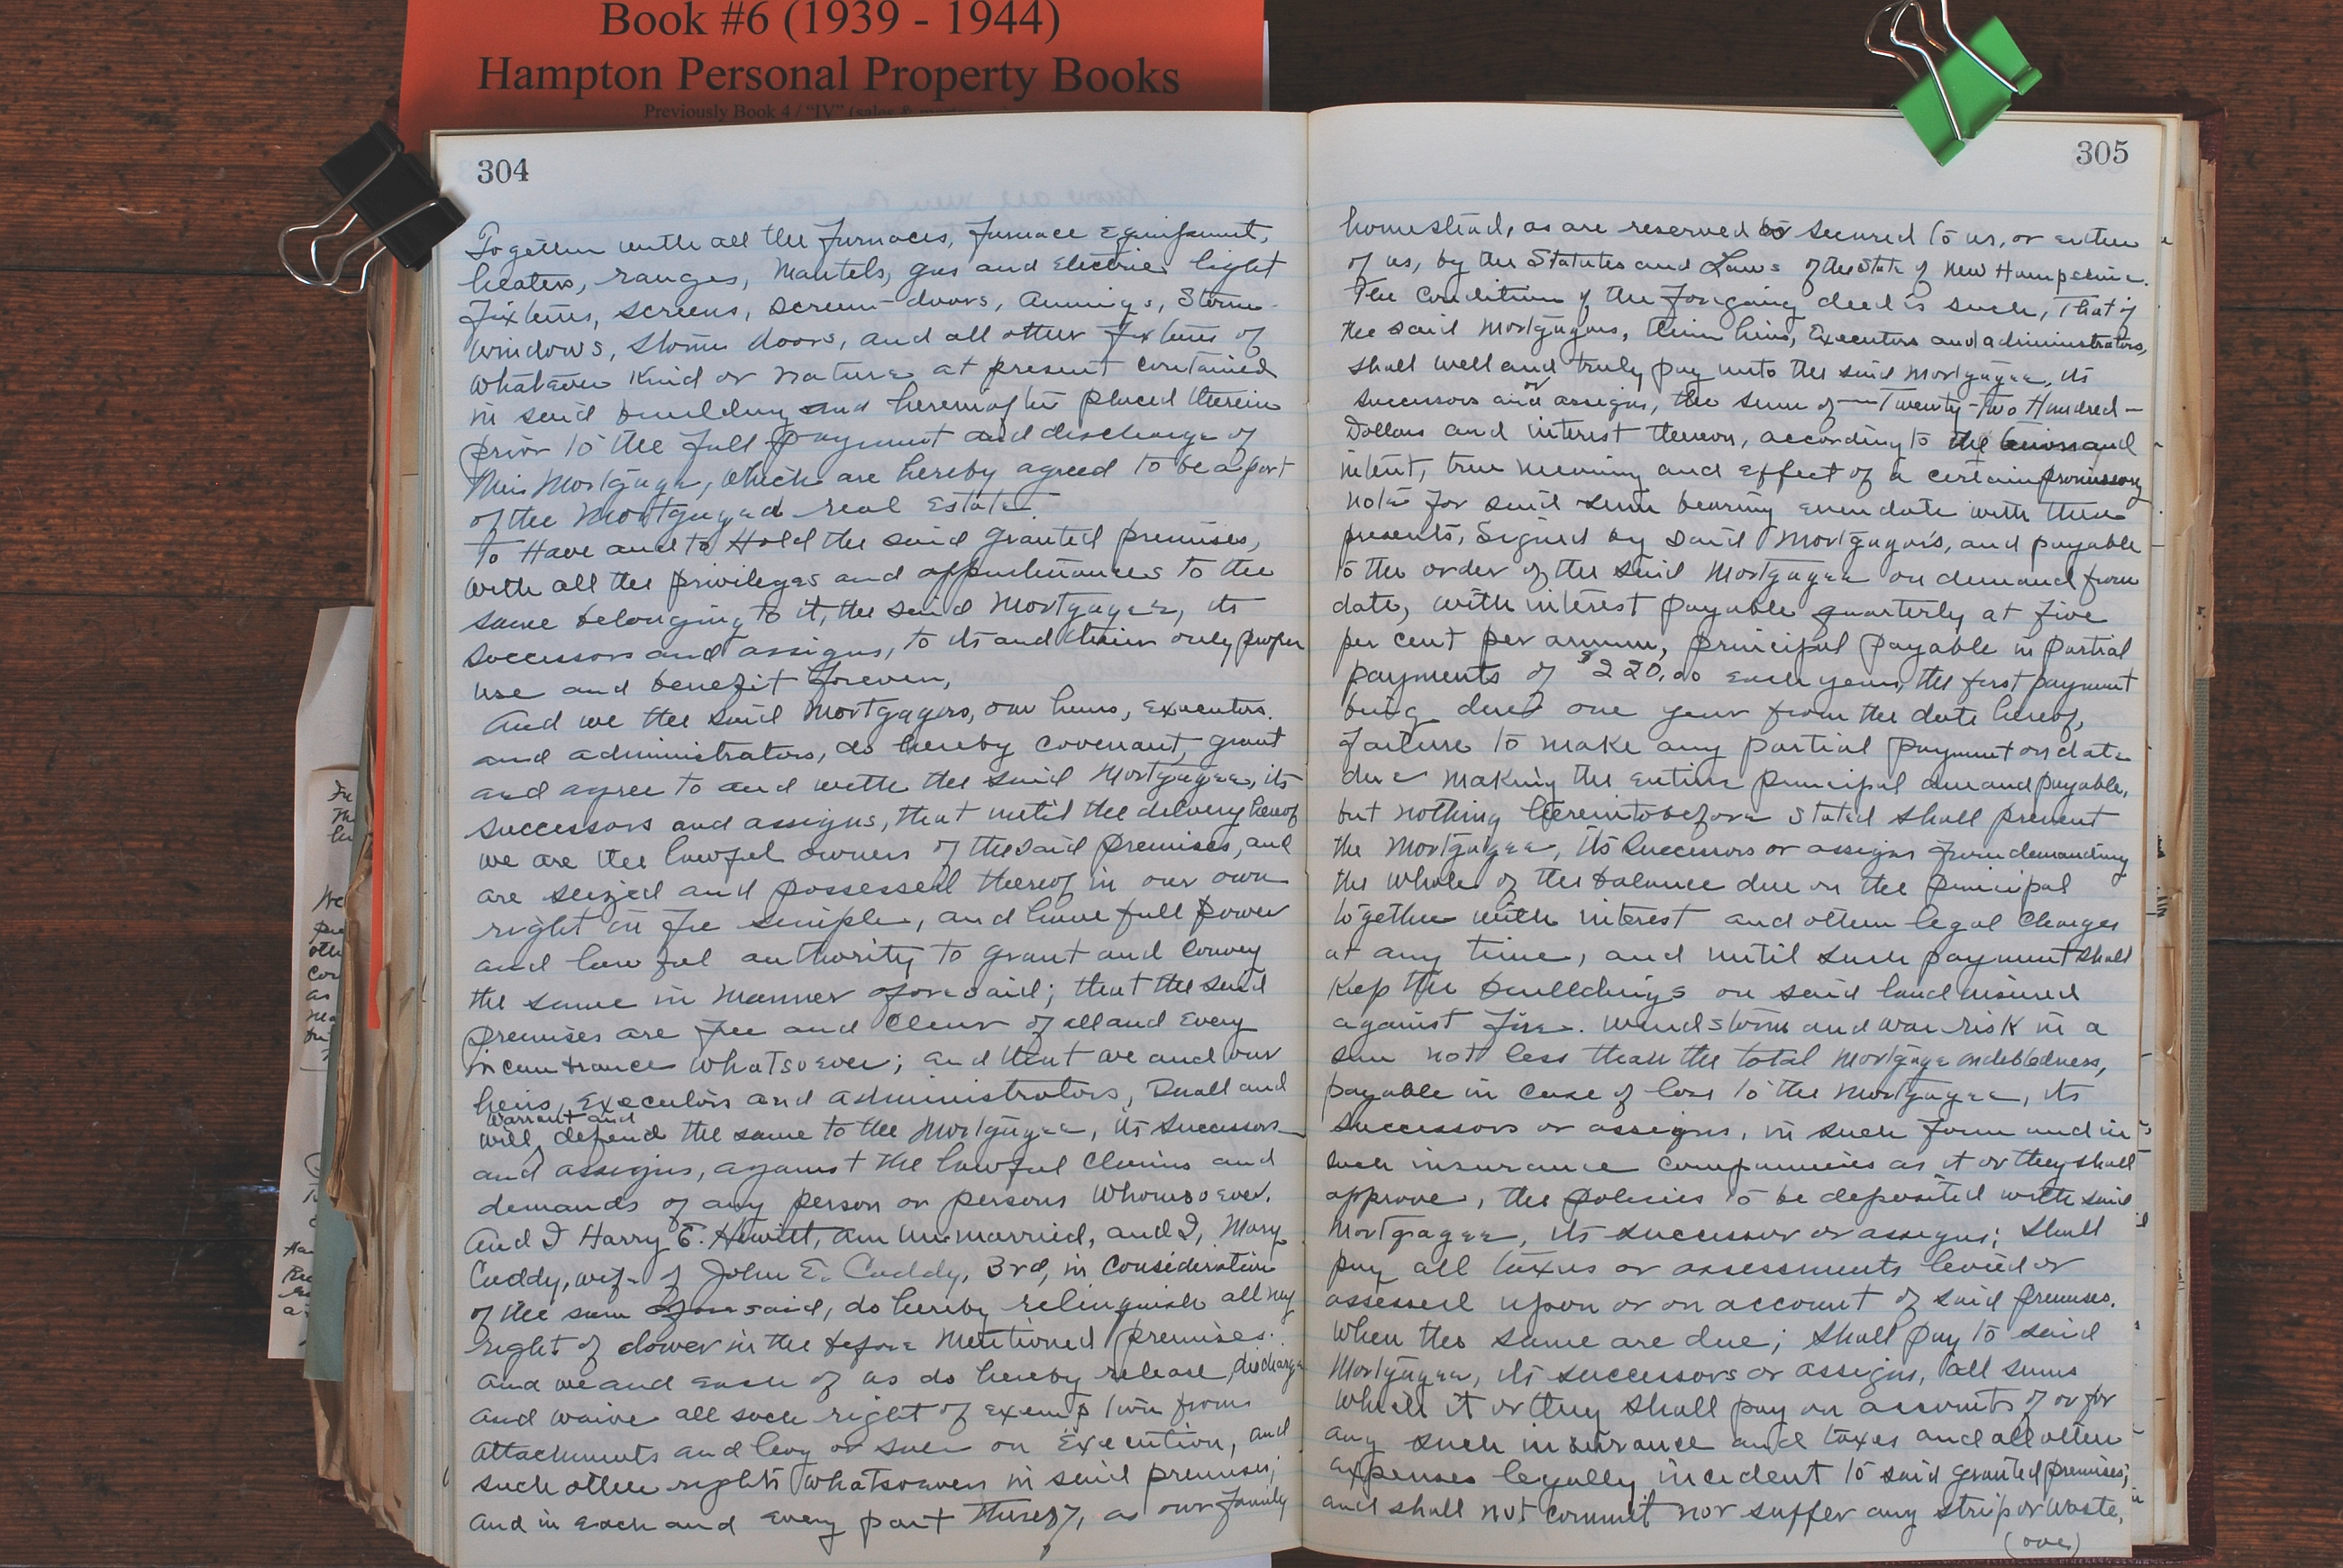 Book #6 (1939 - 1944)
Hampton Personal Property Books
Previously Book 4 / "IV" (sales &
304
Together with all the furnaces, furnace equipment,
heaters, ranges, Mantels, gas and Electric light
Fixtures, screens, screen-doors, Awnings, Storm-
Windows, storm doors, and all other fixtures of
Whatever Kind or nature at present contained
in said building and hereinafter placed therein
prior to the full payment and discharge of
this Mortgage, which are hereby agreed to be a part
of the Mortgaged real Estate
To Have and to Hold the said granted premises,
with all the privileges and appurtenances to the
same belonging to it, the said Mortgagee, its
successors and assigns, to its and their only proper
use and benefit forever,
And we the said Mortgagors, our heirs, executors.
and administrators, do hereby covenant, grant
and agree to and with the said Mortgagee, its
successors and assigns, that until the delivery hereof
we are the lawful owners of the said premises, and
are seized and possessed thereof in our own
right in fee simple, and have full power
and lawful authority to grant and convey
the same in manner aforesaid; that the said
premises are free and Clear of all and Every
incumbrance whatsoever; and that we and our
heirs, Executors and administrators, Shall and
warrant and
will defend the same to the Mortgagee, its successors
and assigns, against the lawful Claims and
demands of any person or persons Whomsoever.
And I Harry E. Hewitt, am unmarried, and I, Mary
Cuddy, wife of John E. Cuddy, 3rd, in consideration
of the sum aforesaid, do hereby relinquish all my
right of dower in the before Mentioned premises.
And we and each of us do hereby release, discharge
and waive all such right of exemption from
attachments and levy or sale on Execution, and
such other rights whatsoever in said premises;
and in each and every part thereof, as our family
305
homestead, as are reserved or secured to us, or either
of us, by the Statutes and Laws of the State of New Hampshire.
The Condition of the foregoing deed is such, That if
the said Mortgagors, their heirs, Executors and administrators,
shall well and truly pay unto the said Mortgagee, its
or
successors and assigns, the sum of — Twenty-Two Hundred —
Dollars and interest thereon, according to the tenor and
intent, true meaning and effect of a certain promissory
note for said sum bearing even date with these
presents, Signed by said Mortgagors, and payable
to the order of the said Mortgagee on demand from
date, with interest payable quarterly at five
per cent per annum, principal payable in partial
payments of $220.00 each year, the first payment
being due one year from the date hereof,
failure to make any partial payment on date
due making the entire principal due and payable,
but nothing hereintobefore stated shall prevent
the Mortgagee, its successors or assigns from demanding
the whole of the balance due on the principal
together with interest and other legal charges
at any time, and until such payment shall
Keep the buildings on said land insured
against fire. windstorm and war risk in a
sum not less than the total Mortgage indebtedness,
payable in case of loss to the Mortgagee, its
successors or assigns, in such form and in
such insurance companies as it or they shall
approve, the policies to be deposited with said
Mortgagee, its successor or assigns; shall
pay all taxes or assessments levied or
assessed upon or on account of said premises.
When the same are due; shall pay to said
Mortgagee, its successors or assigns, all sums
which it or they shall pay on accounts of or for
any such insurance and taxes and all other
expenses legally incident to said granted premises;
and shall not commit nor suffer any strip or waste,
(over)